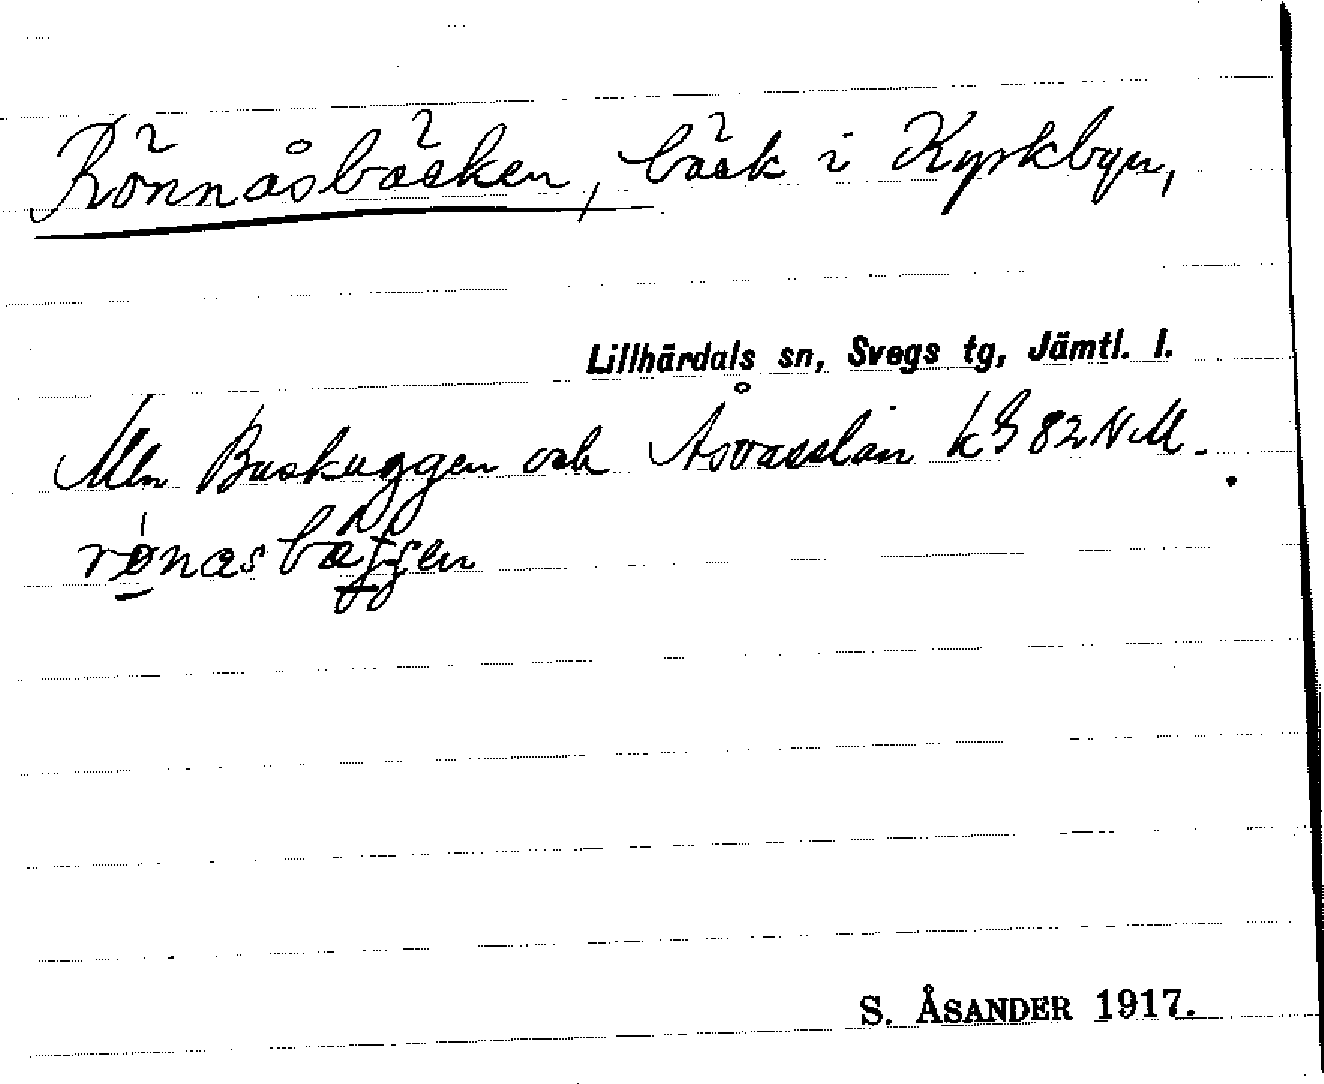 Rönnåsbäcken, bäck i Kyrkbyn,
Lillhärdals sn, Svegs tg, Jämtl. l.
Mln Buskuggen och Åsvasslan k 82 N M.
rønæsbæggen
S. ÅSANDER 1917.